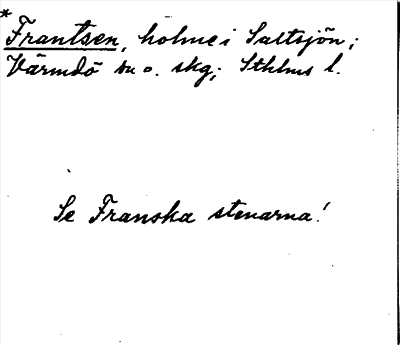 * Frantsen, holme i Saltsjön;
Värmdö sn o. skg; Sthlms l.
Se Franska stenarna!